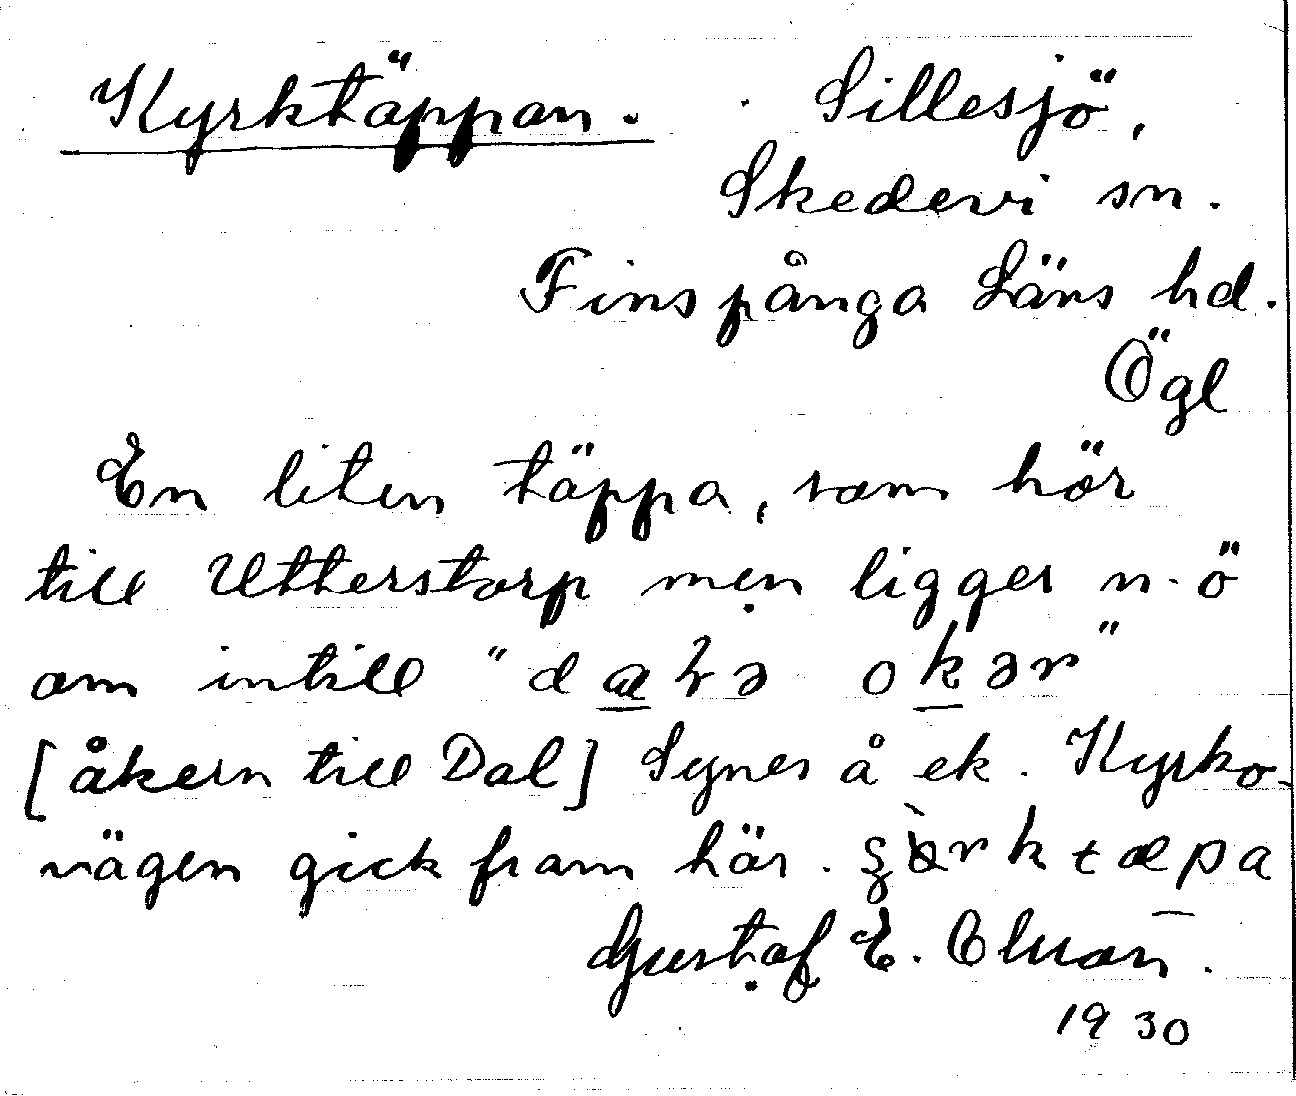 Kyrktäppan. Sillesjö,
Skedevi sn.
Finspånga Läns hd.
Ögl
En liten täppa, som hör
till Utterstorp men ligger n.ö
om intill "
[åkern till Dal] Synes å ek. Kyrko-
vägen gick fram här.
Gustaf E.
1930